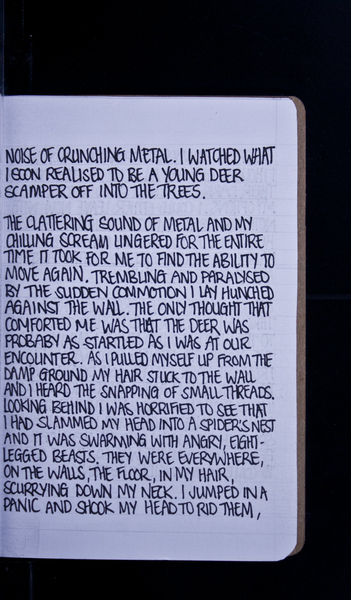 NOISE OF CRUNCHING METAL. I WATCHED WHAT
I SOON REALISED TO BE A YOUNG DEER
SCAMPER OFF INTO THE TREES.
THE CLATTERING SOUND OF METAL AND MY
CHILLING SCREAM LINGERED FOR THE ENTIRE
TIME IT TOOK FOR ME TO FIND THE ABILITY TO
MOVE AGAIN. TREMBLING AND PARALYSED
BY THE SUDDEN COMMOTION I LAY HUNCHED
AGAINST THE WALL. THE ONLY THOUGHT THAT
COMFORTED ME WAS THAT THE DEER WAS
PROBABY AS STARTLED AS I WAS AT OUR
ENCOUNTER. AS I PULLED MYSELF UP FROM THE
DAMP GROUND MY HAIR STUCK TO THE WALL
AND I HEARD THE SNAPPING OF SMALL THREADS.
LOOKING BEHIND I WAS HORRIFIED TO SEE THAT
I HAD SLAMMED MY HEAD INTO A SPIDER'S NEST
AND IT WAS SWARMING WITH ANGRY, EIGHT-
LEGGED BEASTS. THEY WERE EVERYWHERE,
ON THE WALLS, THE FLOOR, IN MY HAIR,
SCURRYING DOWN MY NECK. I JUMPED IN A
PANIC AND SHOOK MY HEAD TO RID THEM,